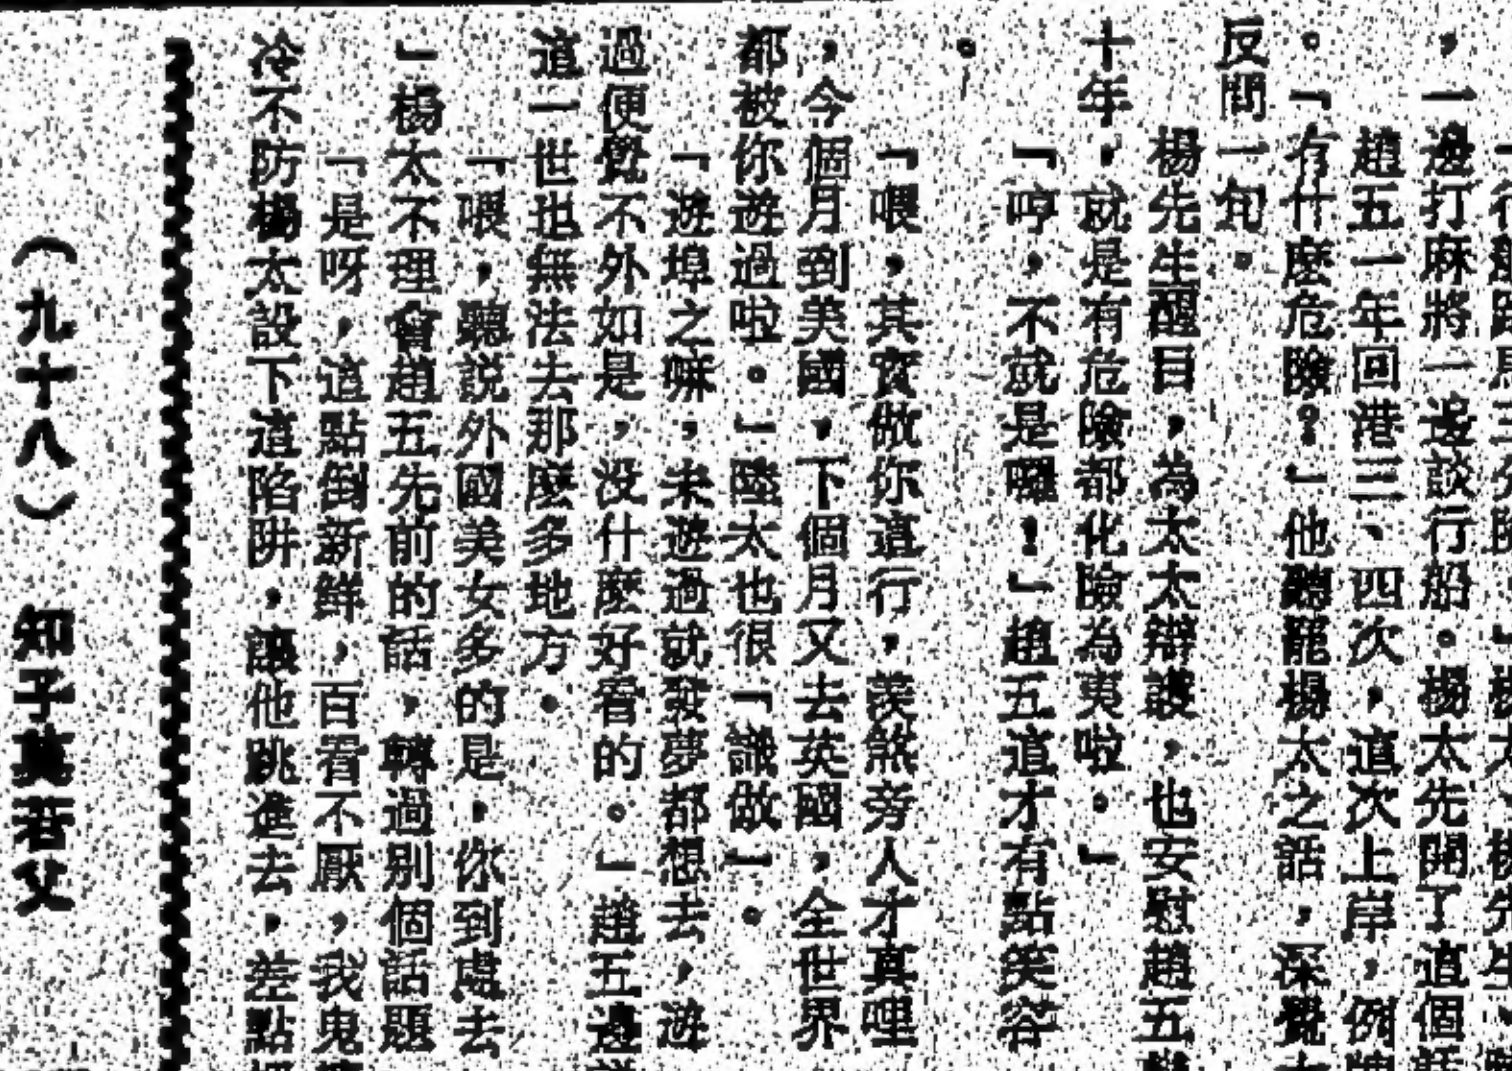 ，一邊打麻將一邊談行船。楊太先開了這個話
趙五一年回港三、四次，這次上岸，例牌
。「有什麼危險？」他聽罷楊太之話，深覺
反問一句。
楊先生醒目，為太太辯護，也安慰趙五
十年，就是有危險都化險為夷啦。」
「哼，不就是囉！」趙五這才有點笑容
。
「喂，其實做你這行，羨煞旁人才真哩
，今個月到美國，下個月又去英國，全世界
都被你遊過啦。」陸太也很「識做」。
「遊埠之嘛，未遊過就發夢都想去，遊
過便覺不外如是，没什麼好看的。」趙五邊
這一世也無法去那麼多地方。
「喂，聽説外國美女多的是，你到處去
」楊太不理會趙五先前的話，轉過別個話題
「是呀，這點倒新鮮，百看不厭，我鬼
冷不防楊太設下這陷阱，讓他跳進去，差點
（九十八） 知子莫若父